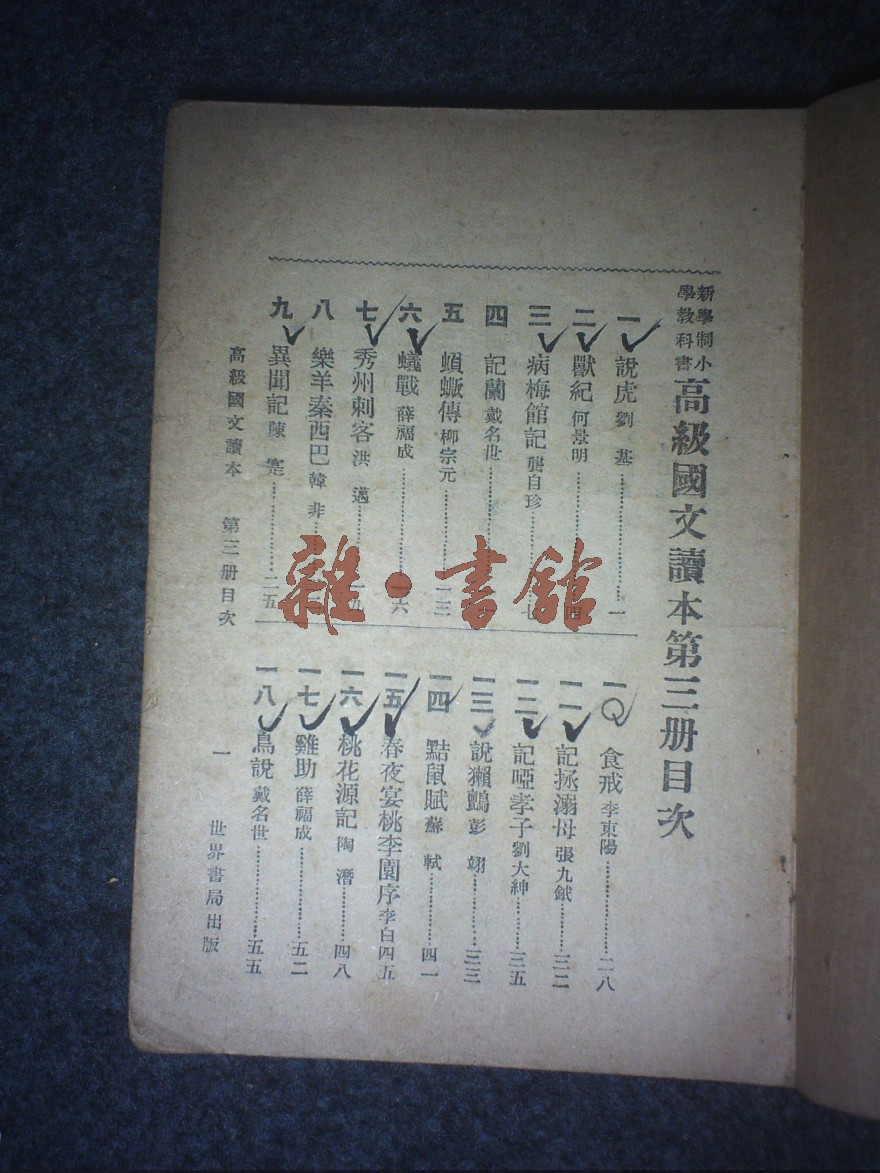 新學制小
學教科書
高級國文讀本第三册目次
一 說虎 劉基 一
二 獸紀 何景明 四
三 病梅館記 龔自珍 七
四 記蘭 戴名世
五 蝜蝂傳 柳宗元 一三
六 蟻戰 薛福成 一六
七 秀州刺客 洪邁 一九
八 樂羊秦西巴 韓非
九 異聞記 陳寔 二五
一〇 食戒 李東陽 二八
一一 記拯溺母 張九鉞 三二
一二 記啞孝子 劉大紳 三五
一三 說獺鷧 彭翊 三三
一四 黠鼠賦 蘇軾 四一
一五 春夜宴桃李園序 李白 四五
一六 桃花源記 陶潛 四八
一七 雞助 薛福成 五二
一八 鳥說 戴名世 五五
高級國文讀本 第三册目次
一
世界書局出版
雜·書館